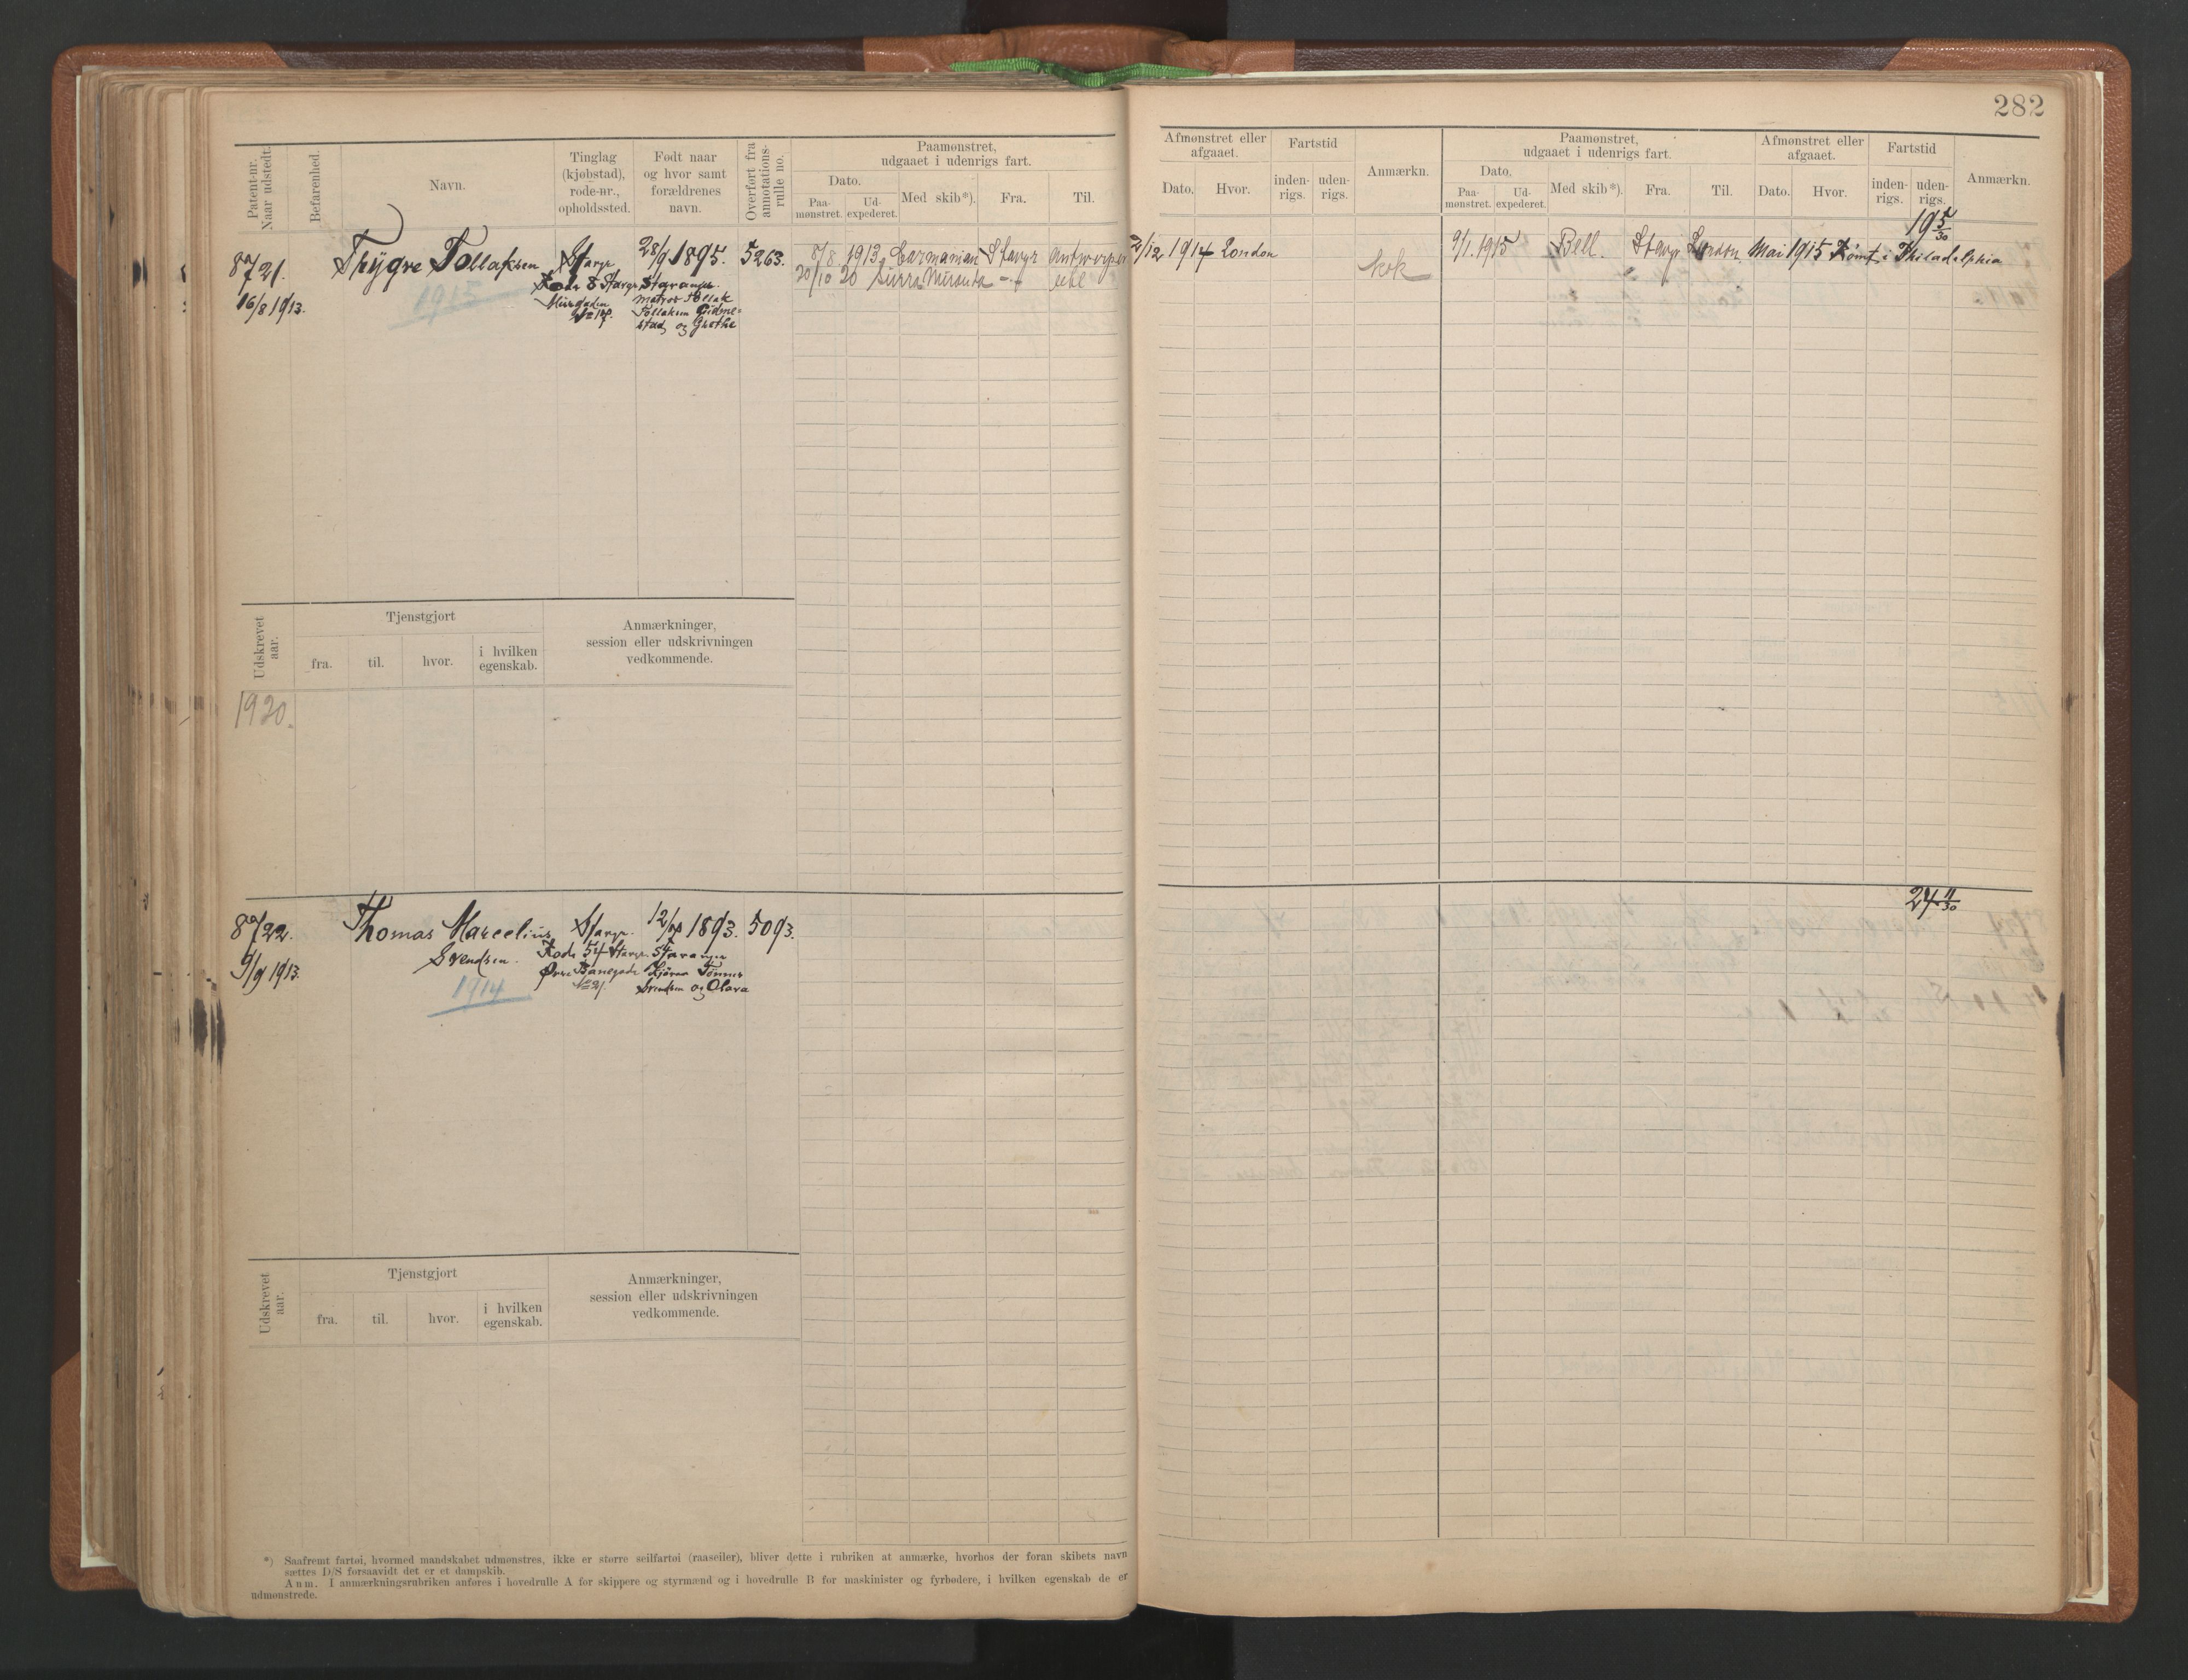 282
Patent-nr. Naar udstedt.
Befarenhed.
Navn.
Tinglag (kjøbstad), rode-nr., opholdssted.
Født naar og hvor samt forældrenes navn.
Overført fra annotations-rulle no.
Paamønstret, udgaaet i udenrigs fart.
Dato.
Paa-mønstret.
Ud-expederet.
Med skib*).
Fra.
Til.
Afmønstret eller afgaaet.
Dato.
Hvor.
Fartstid
inden-rigs.
uden-rigs.
Anmærkn.
Paamønstret, udgaaet i udenrigs fart.
Dato.
Paa-mønstret.
Ud-expederet.
Med skib*).
Fra.
Til.
Afmønstret eller afgaaet.
Dato.
Hvor.
Fartstid
inden-rigs.
uden-rigs.
Anmærkn.
19 5/30
8721.
16/8 1913.
Thygre Tollaksen
1915
Stavgr
Rode 8 Stavgr.
28/9 1895.
Stavanger.
Matros Tollak
Tollaksen
og Grethe
5263.
8/8 1913 Carmanian Stavgr Antwerpen
20/10 20
2/12 1914 London
kok
9/1 1915 Bell. Stavgr London Mai 1915 Rømt i Philadelphia
Udskrevet aar.
Tjenstgjort
fra.
til.
hvor.
i hvilken egenskab.
Anmærkninger, session eller udskrivningen vedkommende.
1920.
24 11/30
8722.
9/9 1913.
Thomas Marcelius
Svendsen.
1914
Stavgr.
Rode 54 Stavgr.
Øvre Banegade
No 21.
12/7 1893.
Stavanger
Tønnes
Svendsen og Olava
5093.
Udskrevet aar.
Tjenstgjort
fra.
til.
hvor.
i hvilken egenskab.
Anmærkninger, session eller udskrivningen vedkommende.
*) Saafremt fartøi, hvormed mandskabet udmønstres, ikke er større seilfartøi (raaseiler), bliver dette i rubriken at anmærke, hvorhos der foran skibets navn
sættes D/S forsaavidt det er et dampskib.
Anm. I anmærkningsrubriken anføres i hovedrulle A for skippere og styrmænd og i hovedrulle B for maskinister og fyrbødere, i hvilken egenskab de er
udmønstrede.